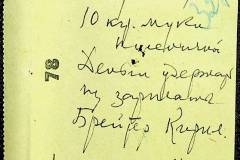 10 кг. муки
пшеничной
Деньги удержать
из зарплаты
Брейтер Кирил.
78